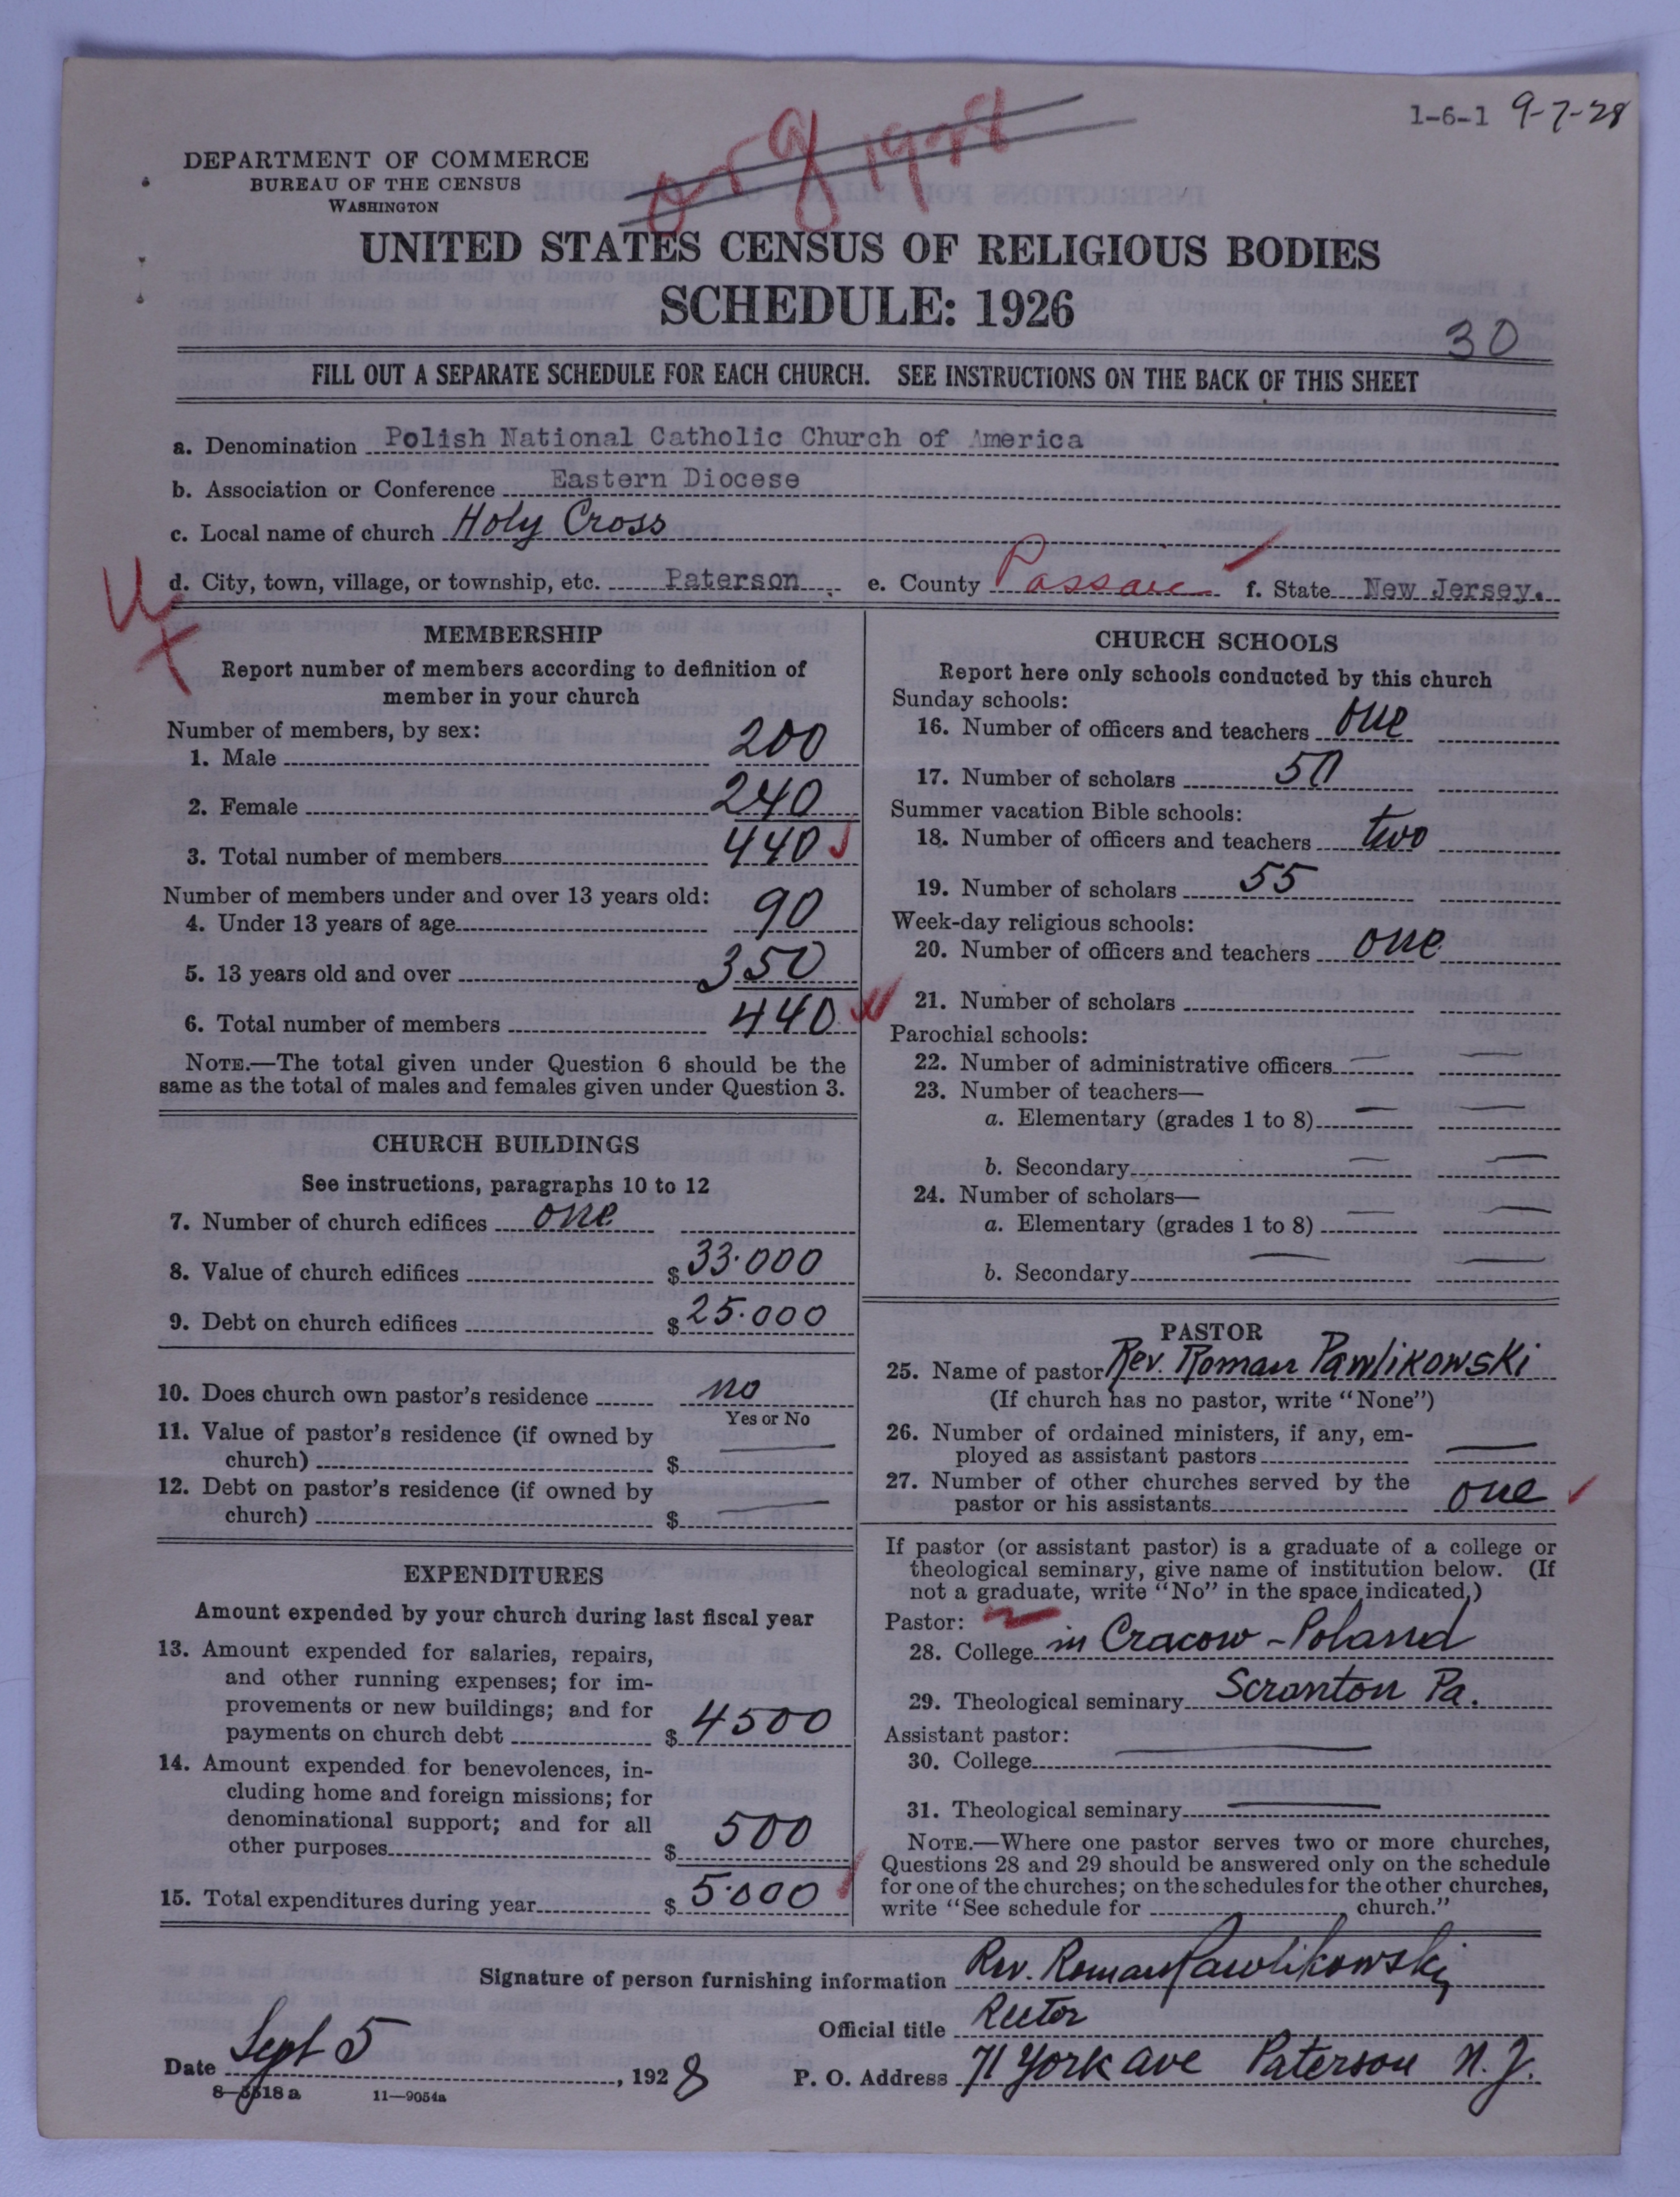 1-6-1 9-7-28
org 1928
DEPARTMENT OF COMMERCE
BUREAU OF THE CENSUS
WASHINGTON
UNITED STATES CENSUS OF RELIGIOUS BODIES
SCHEDULE: 1926
30
FILL OUT A SEPARATE SCHEDULE FOR EACH CHURCH. SEE INSTRUCTIONS ON THE BACK OF THIS SHEET
a. Denomination Polish National Catholic Church of America
b. Association or Conference Eastern Diocese
c. Local name of church Holy Cross
d. City, town, village, or township, etc. Paterson e. County Passaic f. State New Jersey.
MEMBERSHIP
Report number of members according to definition of
member in your church
Number of members, by sex:
1. Male 200
2. Female 240
3. Total number of members 440
Number of members under and over 13 years old:
4. Under 13 years of age 90
5. 13 years old and over 350
6. Total number of members 440
NOTE.—The total given under Question 6 should be the
same as the total of males and females given under Question 3.
CHURCH BUILDINGS
See instructions, paragraphs 10 to 12
7. Number of church edifices one
8. Value of church edifices $ 33.000
9. Debt on church edifices $ 25.000
10. Does church own pastor's residence no
Yes or No
11. Value of pastor's residence (if owned by
church) $ —
12. Debt on pastor's residence (if owned by
church) $ —
EXPENDITURES
Amount expended by your church during last fiscal year
13. Amount expended for salaries, repairs,
and other running expenses; for im-
provements or new buildings; and for
payments on church debt $ 4500
14. Amount expended for benevolences, in-
cluding home and foreign missions; for
denominational support; and for all
other purposes $ 500
15. Total expenditures during year $ 5.000
CHURCH SCHOOLS
Report here only schools conducted by this church
Sunday schools:
16. Number of officers and teachers one
17. Number of scholars 50
Summer vacation Bible schools:
18. Number of officers and teachers two
19. Number of scholars 55
Week-day religious schools:
20. Number of officers and teachers one
21. Number of scholars
Parochial schools:
22. Number of administrative officers — —
23. Number of teachers—
a. Elementary (grades 1 to 8) — —
b. Secondary — —
24. Number of scholars—
a. Elementary (grades 1 to 8) — —
b. Secondary — —
PASTOR
25. Name of pastor Rev. Roman Pawlikowski
(If church has no pastor, write "None")
26. Number of ordained ministers, if any, em-
ployed as assistant pastors —
27. Number of other churches served by the
pastor or his assistants one
If pastor (or assistant pastor) is a graduate of a college or
theological seminary, give name of institution below. (If
not a graduate, write "No" in the space indicated.)
Pastor:
28. College in Cracow - Poland
29. Theological seminary Scranton Pa.
Assistant pastor:
30. College —
31. Theological seminary —
NOTE.—Where one pastor serves two or more churches,
Questions 28 and 29 should be answered only on the schedule
for one of the churches; on the schedules for the other churches,
write "See schedule for church."
Signature of person furnishing information Rev. Roman Pawlikowski
Official title Rector
Date Sept 5, 1928 P. O. Address 71 York ave Paterson N.J.
8—5518a 11—9054a